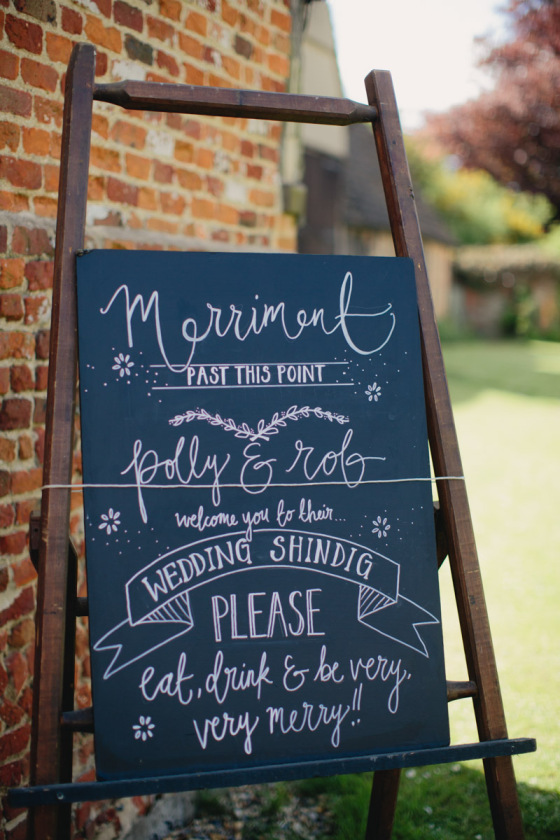 Merriment
PAST THIS POINT
polly & rob
welcome you to their...
WEDDING SHINDIG
PLEASE
eat, drink & be very,
very merry!!